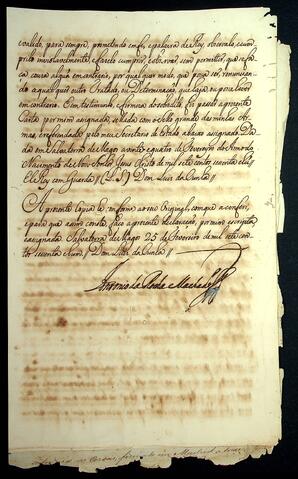 e valido, para sempre, prometendo em fé, e palavra de Rey, observalo, e cum-
prilo inviolavelmente, e fazelo cumprir, e observar, sem permittir, que se fa-
ça cousa algũa em contrario, por qual quer modo, que possa ser, renuncian-
do a qual quer outro Tratado, ou Determinação, que haja, ou possa haver
em contrario. E em testimunho, e firmeza do sobredito, fiz passar a presente
Carta por mim assignada, sellada com o sello grande das minhas Ar-
mas, e referendada pelo meu Secretario de Estado abaixo assignado. Da-
da em Salvaterra de Magos a vinte e quatro de Fevereiro do Anno do
Nascimento de Nosso Senhor Jesus Christo de mil sete centos secenta e
El Rey com Guarda // (L.S.) Dom Luis da Cunha //
A presente Copia he conforme ao seu Original, com que a conferi,
e para que assim conste, faço a presente declaração, por mim escripta
e assignada. Salvaterra de Magos 25 de Fevereiro de mil sete cen-
tos secenta e hum // Dom Luis da Cunha //
Antonio da Rocha Machado